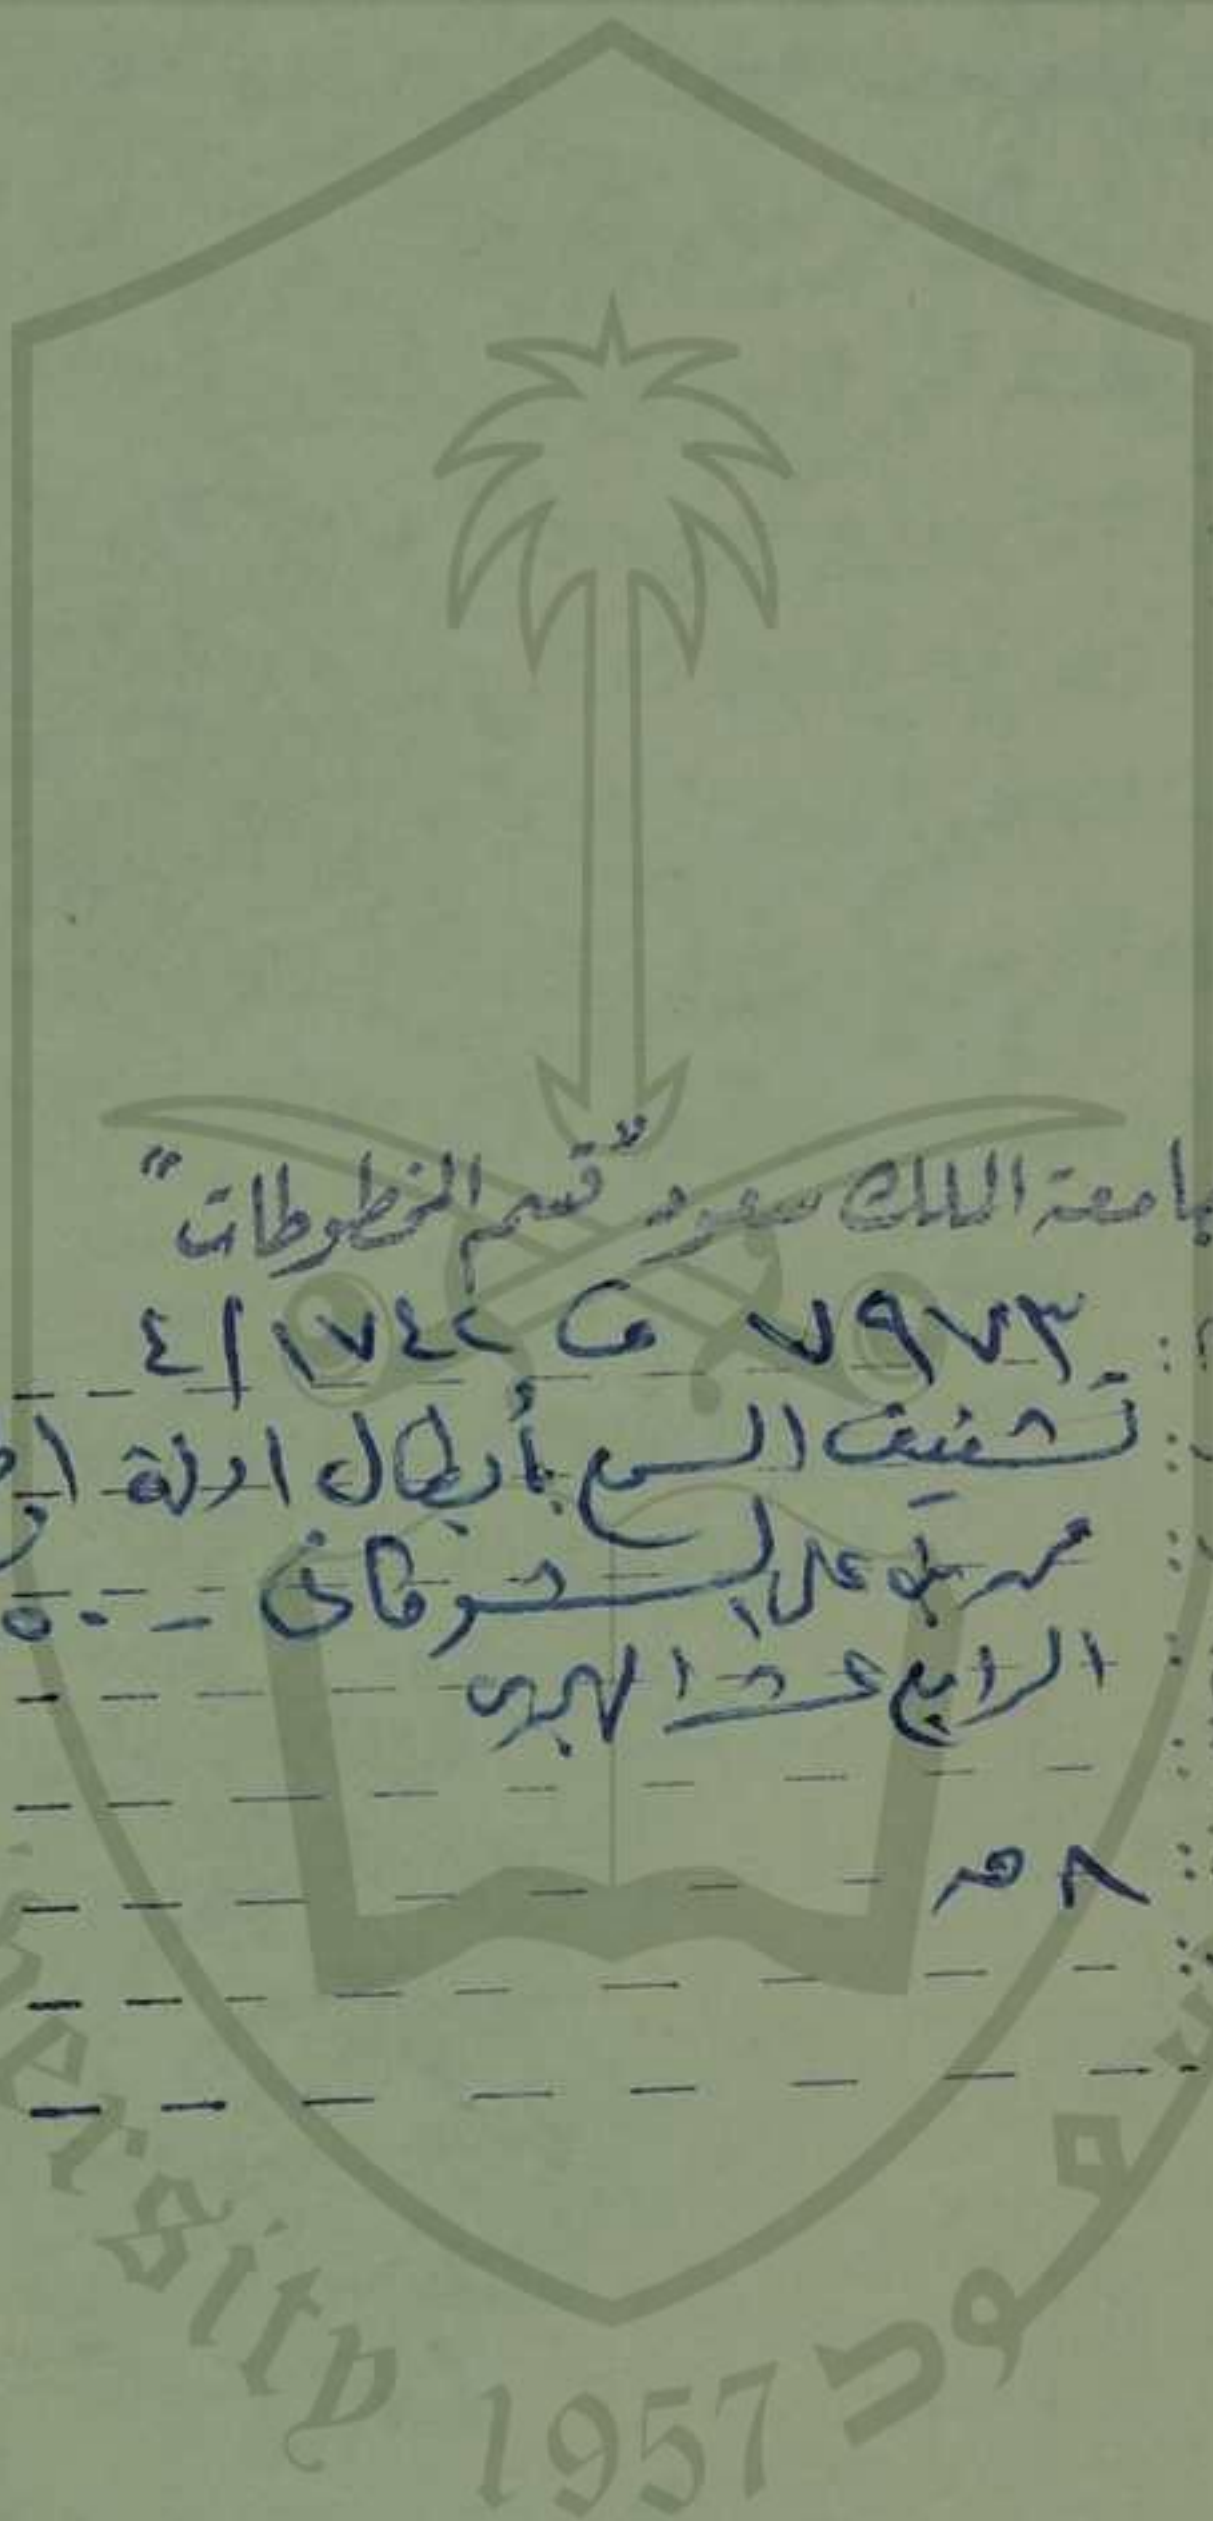 جامعة الملك سعود "قسم المخطوطات"
٧٩٧٣ ف ١٧٤٢/٤
تشنيف السمع بأبطال ادلة
محمد بن علي الشوكاني - ٥٠
الرابع عشر الهجري
٨ ص
ersity 1957 سعود